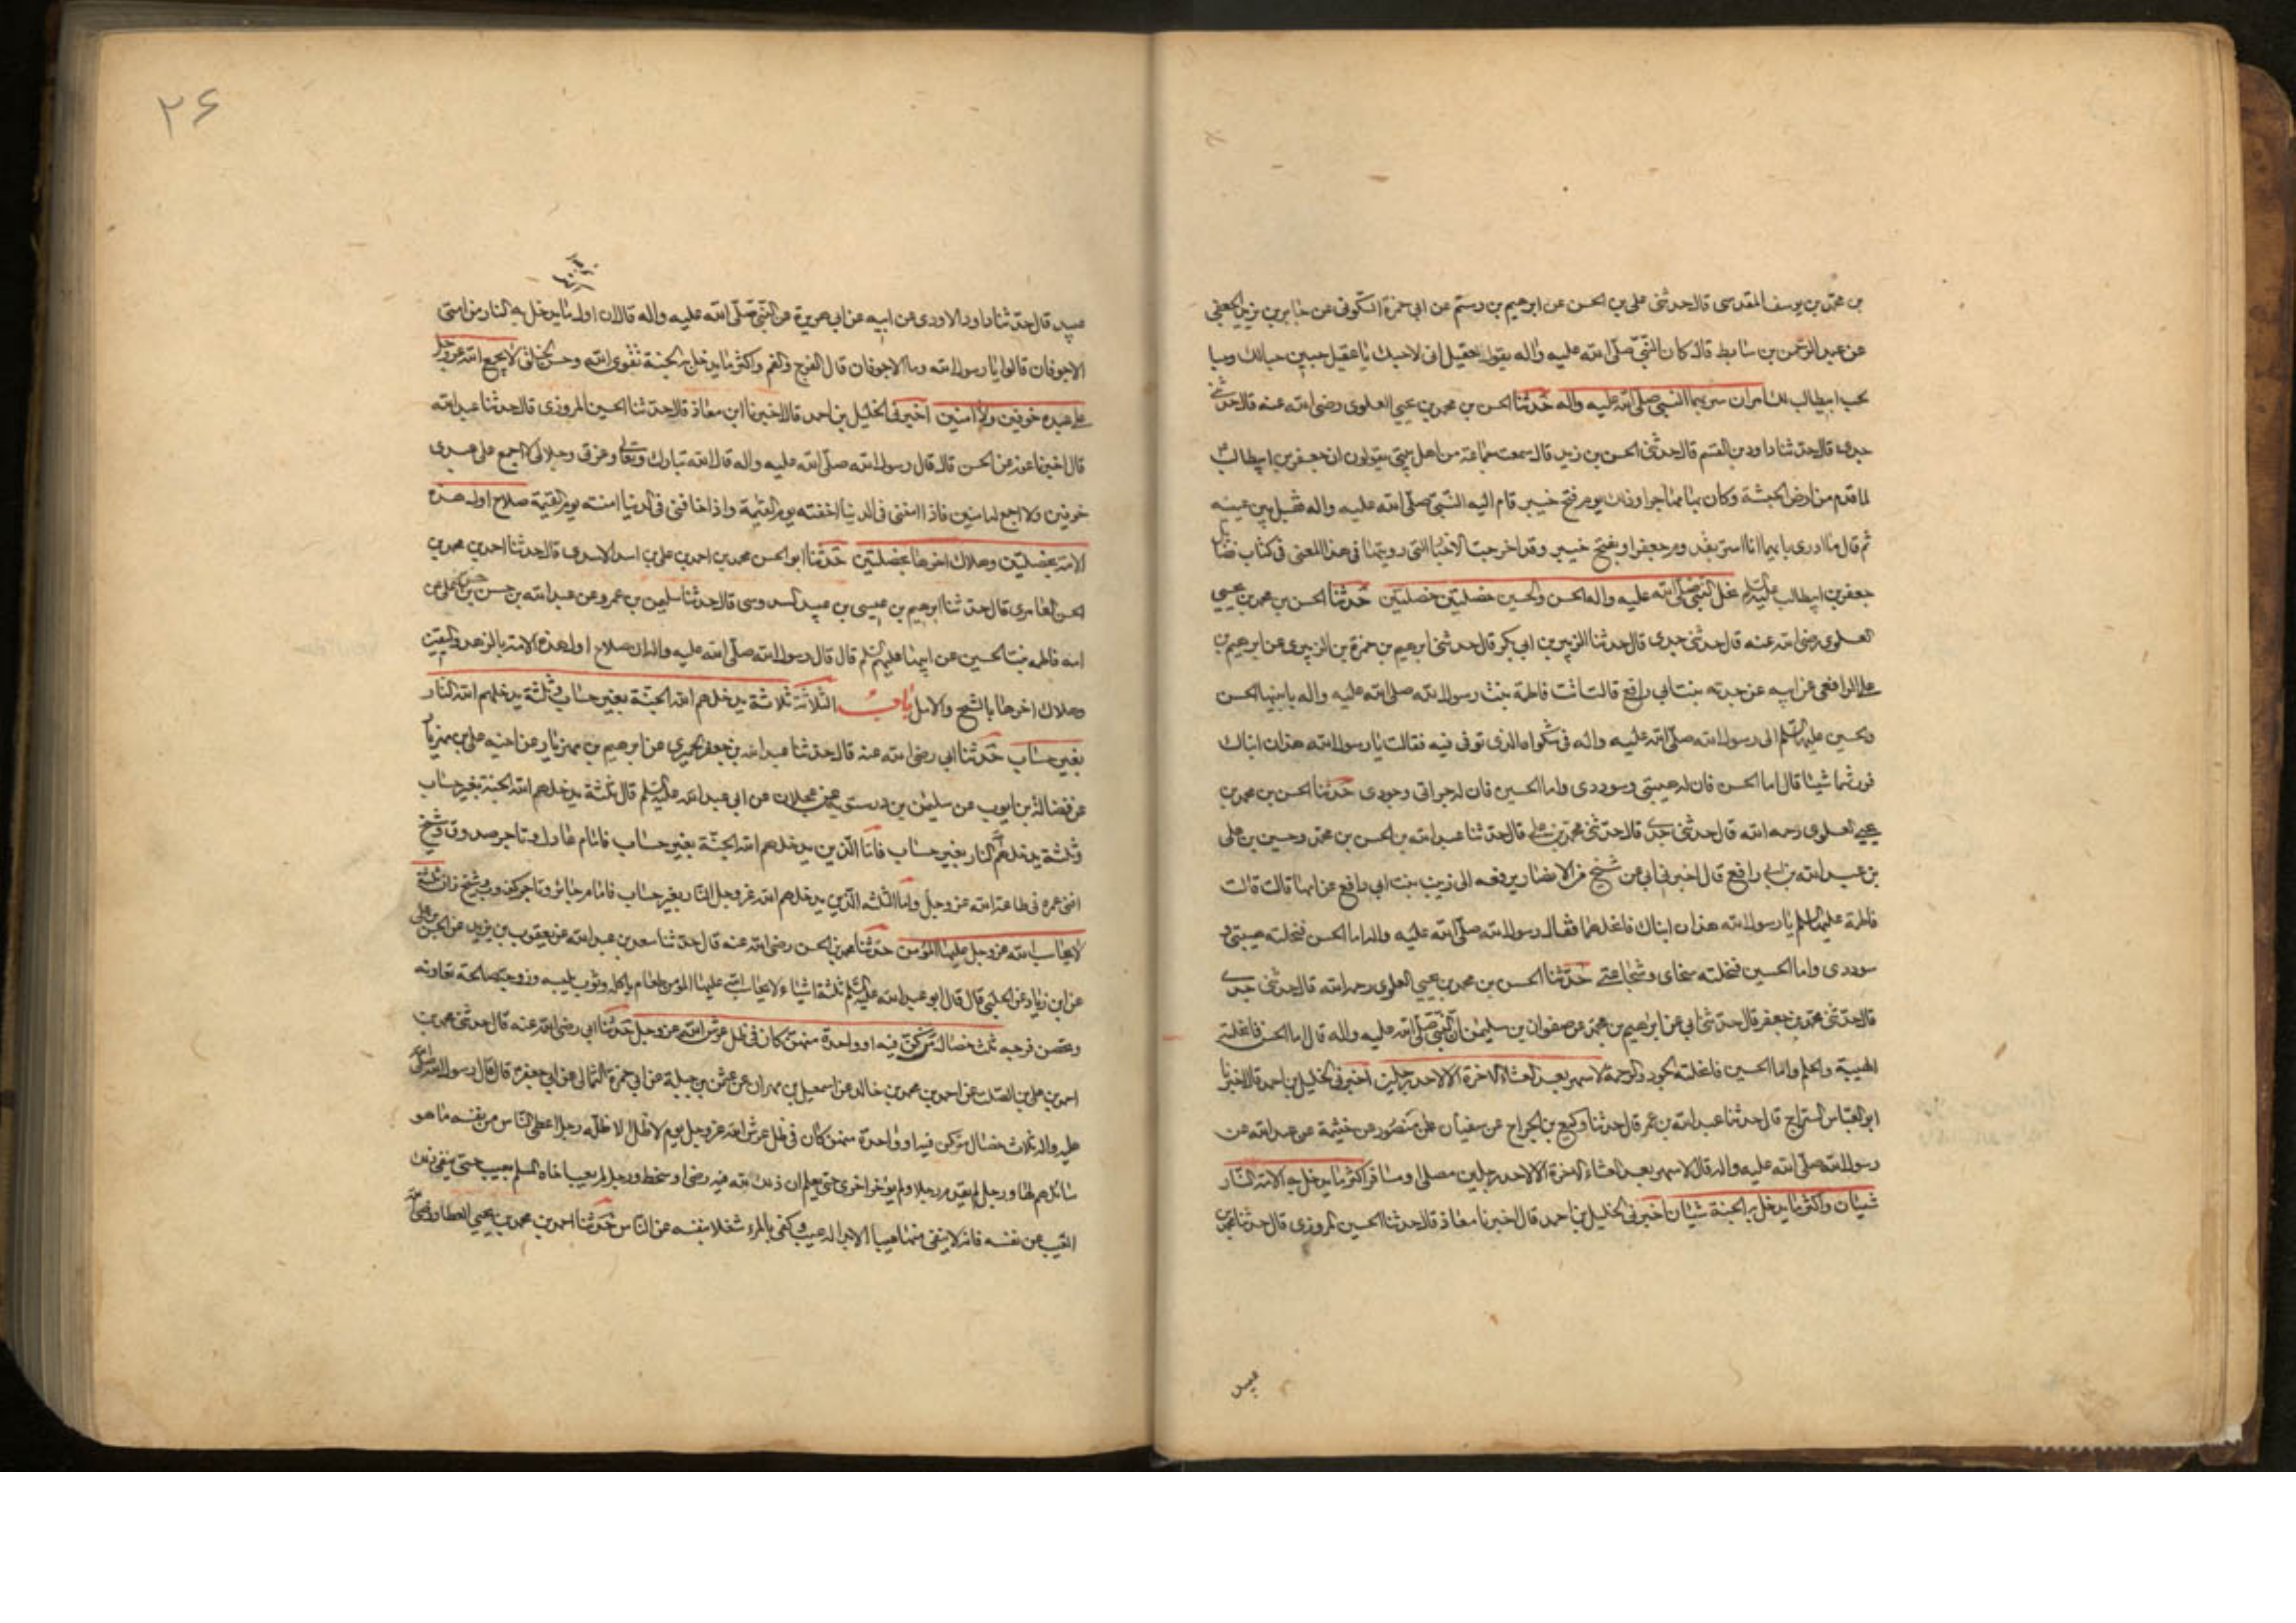 بن محمد بن يوسف المقدسى قال حدثنى على بن الحسن عن ابرهيم بن رستم عن ابى حمزة السكونى عن جابر بن يزيد الجعفى
عن عبد الرحمن بن سابط قال كان النبى صلى الله عليه واله يقول لعقيل انى لاحبك يا عقيل حبين حبا لك وحبا
لحب ابيطالب لك امران سر بهما النبى صلى الله عليه واله حدثنا الحسن بن محمد بن يحيى العلوى رضى الله عنه قال حدثنى
جدى قال حدثنا داود بن القسم قال حدثنى الحسن بن زيد قال سمعت جماعة من اهل بيتى يقولون ان جعفر بن ابيطالب
لما قدم من ارض الحبشة وكان بها مهاجرا وذلك يوم فتح خيبر قام اليه النبى صلى الله عليه واله فقبل بين عينيه
ثم قال ما ادرى بايهما انا اسر بقدوم جعفر او بفتح خيبر وقد اخرجت الاخبار التى رويتها فى هذا المعنى فى كتاب فضائل
جعفر بن ابيطالب عليه السلم نحل النبى صلى الله عليه واله الحسن والحسين خصلتين خصلتين حدثنا الحسن بن محمد بن يحيى
العلوى رضى الله عنه قال حدثنى جدى قال حدثنا الزبير بن ابى بكر قال حدثنى ابرهيم بن حمزة بن الزبيرى عن ابرهيم بن
على الرافعى عن ابيه عن جدته بنت ابى رافع قالت اتت فاطمة بنت رسول الله صلى الله عليه واله بابنيها الحسن
والحسين عليهما السلم الى رسول الله صلى الله عليه واله فى شكواه الذى توفى فيه فقالت يا رسول الله هذان ابناك
فورثهما شيئا قال اما الحسن فان له هيبتى وسوددى واما الحسين فان له جراتى وجودى حدثنا الحسن بن محمد بن
يحيى العلوى رحمه الله قال حدثنى جدى قال حدثنى محمد بن على قال حدثنا عبد الله بن الحسن بن محمد وحسين بن على
بن عبد الله بن ابى رافع قال اخبرنى ابى عن شيخ من الانصار يرفعه الى زينب بنت ابى رافع عن امها قالت قالت
فاطمة عليها السلم يا رسول الله هذان ابناك فانحلهما فقال رسول الله صلى الله عليه واله اما الحسن فنحلته هيبتى و
سوددى واما الحسين فنحلته سخاى وشجاعتى حدثنا الحسن بن محمد بن يحيى العلوى رحمه الله قال حدثنى جدى
قال حدثنى محمد بن جعفر قال حدثنى ابى عن ابرهيم بن محمد عن صفوان بن سليمن ان النبى صلى الله عليه واله قال اما الحسن فانحلته
الهيبة والحلم واما الحسين فانحلته الجود والرحمة لا سهر بعد العشاء الاخرة الا لاحد رجلين اخبرنى الخليل بن احمد قال اخبرنا
ابو العباس السراج قال حدثنا عبد الله بن عمر قال حدثنا وكيع بن الجراح عن سفيان عن منصور عن خيثمة عن عبد الله عن
رسول الله صلى الله عليه واله قال لا سهر بعد العشاء الاخرة الا لاحد رجلين مصلى او مسافر اكثر ما يدخل به الامة النار
شيئان واكثر ما يدخل به الجنة شيئان اخبرنى الخليل بن احمد قال اخبرنا معاذ قال حدثنا الحسين المروزى قال حدثنا محمد بن
عبيد
٢٤
عبيد قال حدثنا داود الاودى عن ابيه عن ابى هريرة عن النبى صلى الله عليه واله قال ان اول ما يدخل به النار من امتى
الاجوفان قالوا يا رسول الله وما الاجوفان قال الفرج والفم واكثر ما يدخل به الجنة تقوى الله وحسن الخلق لا يجمع الله عز وجل
على عبده خوفين ولا امنين اخبرنى الخليل بن احمد قال اخبرنا ابن معاذ قال حدثنا الحسين المروزى قال حدثنا عبد الله
قال اخبرنا عون عن الحسن قال قال رسول الله صلى الله عليه واله قال الله تبارك وتعالى وعزتى وجلالى لا اجمع على عبدى
خوفين ولا اجمع له امنين فاذا امننى فى الدنيا اخفته يوم القيمة واذا خافنى فى الدنيا امنته يوم القيمة صلاح اول هذه
الامة بخصلتين وهلاك اخرها بخصلتين حدثنا ابو الحسن محمد بن احمد بن على بن اسد الاسدى قال حدثنا احمد بن محمد بن
الحسن العامرى قال حدثنا ابرهيم بن عيسى بن عبيد السدوسى قال حدثنا سليمن بن عمرو عن عبد الله بن حسن بن حسن بن على عن
امه فاطمه بنت الحسين عن ابيها عليهم السلم قال قال رسول الله صلى الله عليه واله ان صلاح اول هذه الامة بالزهد واليقين
وهلاك اخرها بالشح والامل باب الثلاثة ثلاثة يدخلهم الله الجنة بغير حساب وثلثة يدخلهم الله النار
بغير حساب حدثنا ابى رضى الله عنه قال حدثنا عبد الله بن جعفر الحميرى عن ابرهيم بن مهزيار عن اخيه على بن مهزيار
عن فضالة بن ايوب عن سليمن بن درستويه عن عجلان عن ابى عبد الله عليه السلم قال ثلثة يدخلهم الله الجنة بغير حساب
وثلثة يدخلهم النار بغير حساب فاما الذين يدخلهم الله الجنة بغير حساب فامام عادل وتاجر صدوق وشيخ
افنى عمره فى طاعة الله عز وجل واما الثلثة الذين يدخلهم الله عز وجل النار بغير حساب فامام جائر وتاجر كذوب وشيخ زان ثلثة
لا يحاسب الله عز وجل عليها المؤمن حدثنا محمد بن الحسن رضى الله عنه قال حدثنا سعد بن عبد الله عن يعقوب بن يزيد عن الحسن بن على
عن ابن زياد عن الحلبى قال قال ابو عبد الله عليه السلم ثلثة اشياء لا يحاسب الله عليها المؤمن طعام ياكله وثوب يلبسه وزوجة صالحة تعاونه
وتحصن فرجه ثلث خصال من كن فيه او واحدة منهن كان فى ظل عرش الله عز وجل حدثنا ابى رضى الله عنه قال حدثنى محمد بن
احمد بن على بن الصلت عن احمد بن محمد بن خالد عن اسمعيل بن مهران عن عثمن بن جبلة عن ابى حمزة الثمالى عن ابى جعفر قال قال رسول الله صلى الله
عليه واله ثلاث خصال من كن فيه او واحدة منهن كان فى ظل عرش الله عز وجل يوم لا ظل الا ظله رجل اعطى الناس من نفسه ما هو
سائلهم لها ورجل لم يقدم رجلا ولم يؤخر اخرى حتى يعلم ان ذلك لله فيه رضى او سخط ورجل لم يعب اخاه المسلم بعيب حتى ينفى ذلك
العيب من نفسه فانه لا ينفى منها عيبا الا بدا له عيب وكفى بالمرء شغلا بنفسه عن الناس حدثنا احمد بن محمد بن يحيى العطار رضى الله عنه